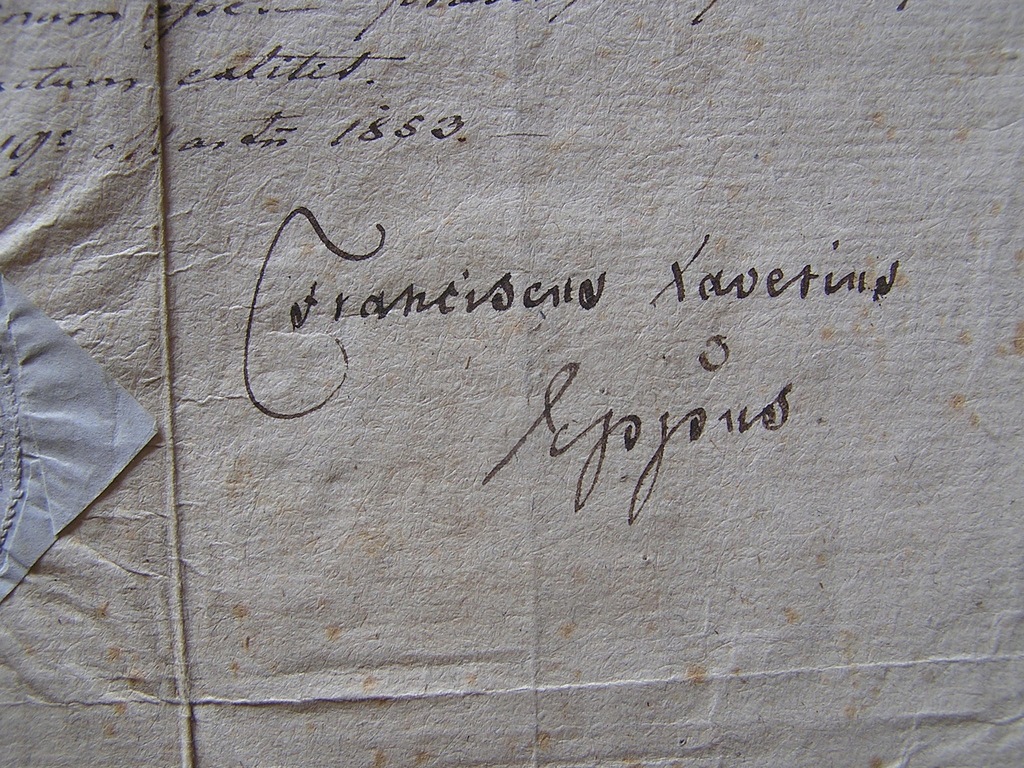 actum extitit.
19ᵉ Martii 1853.
Franciscus Xaverius
Eppus